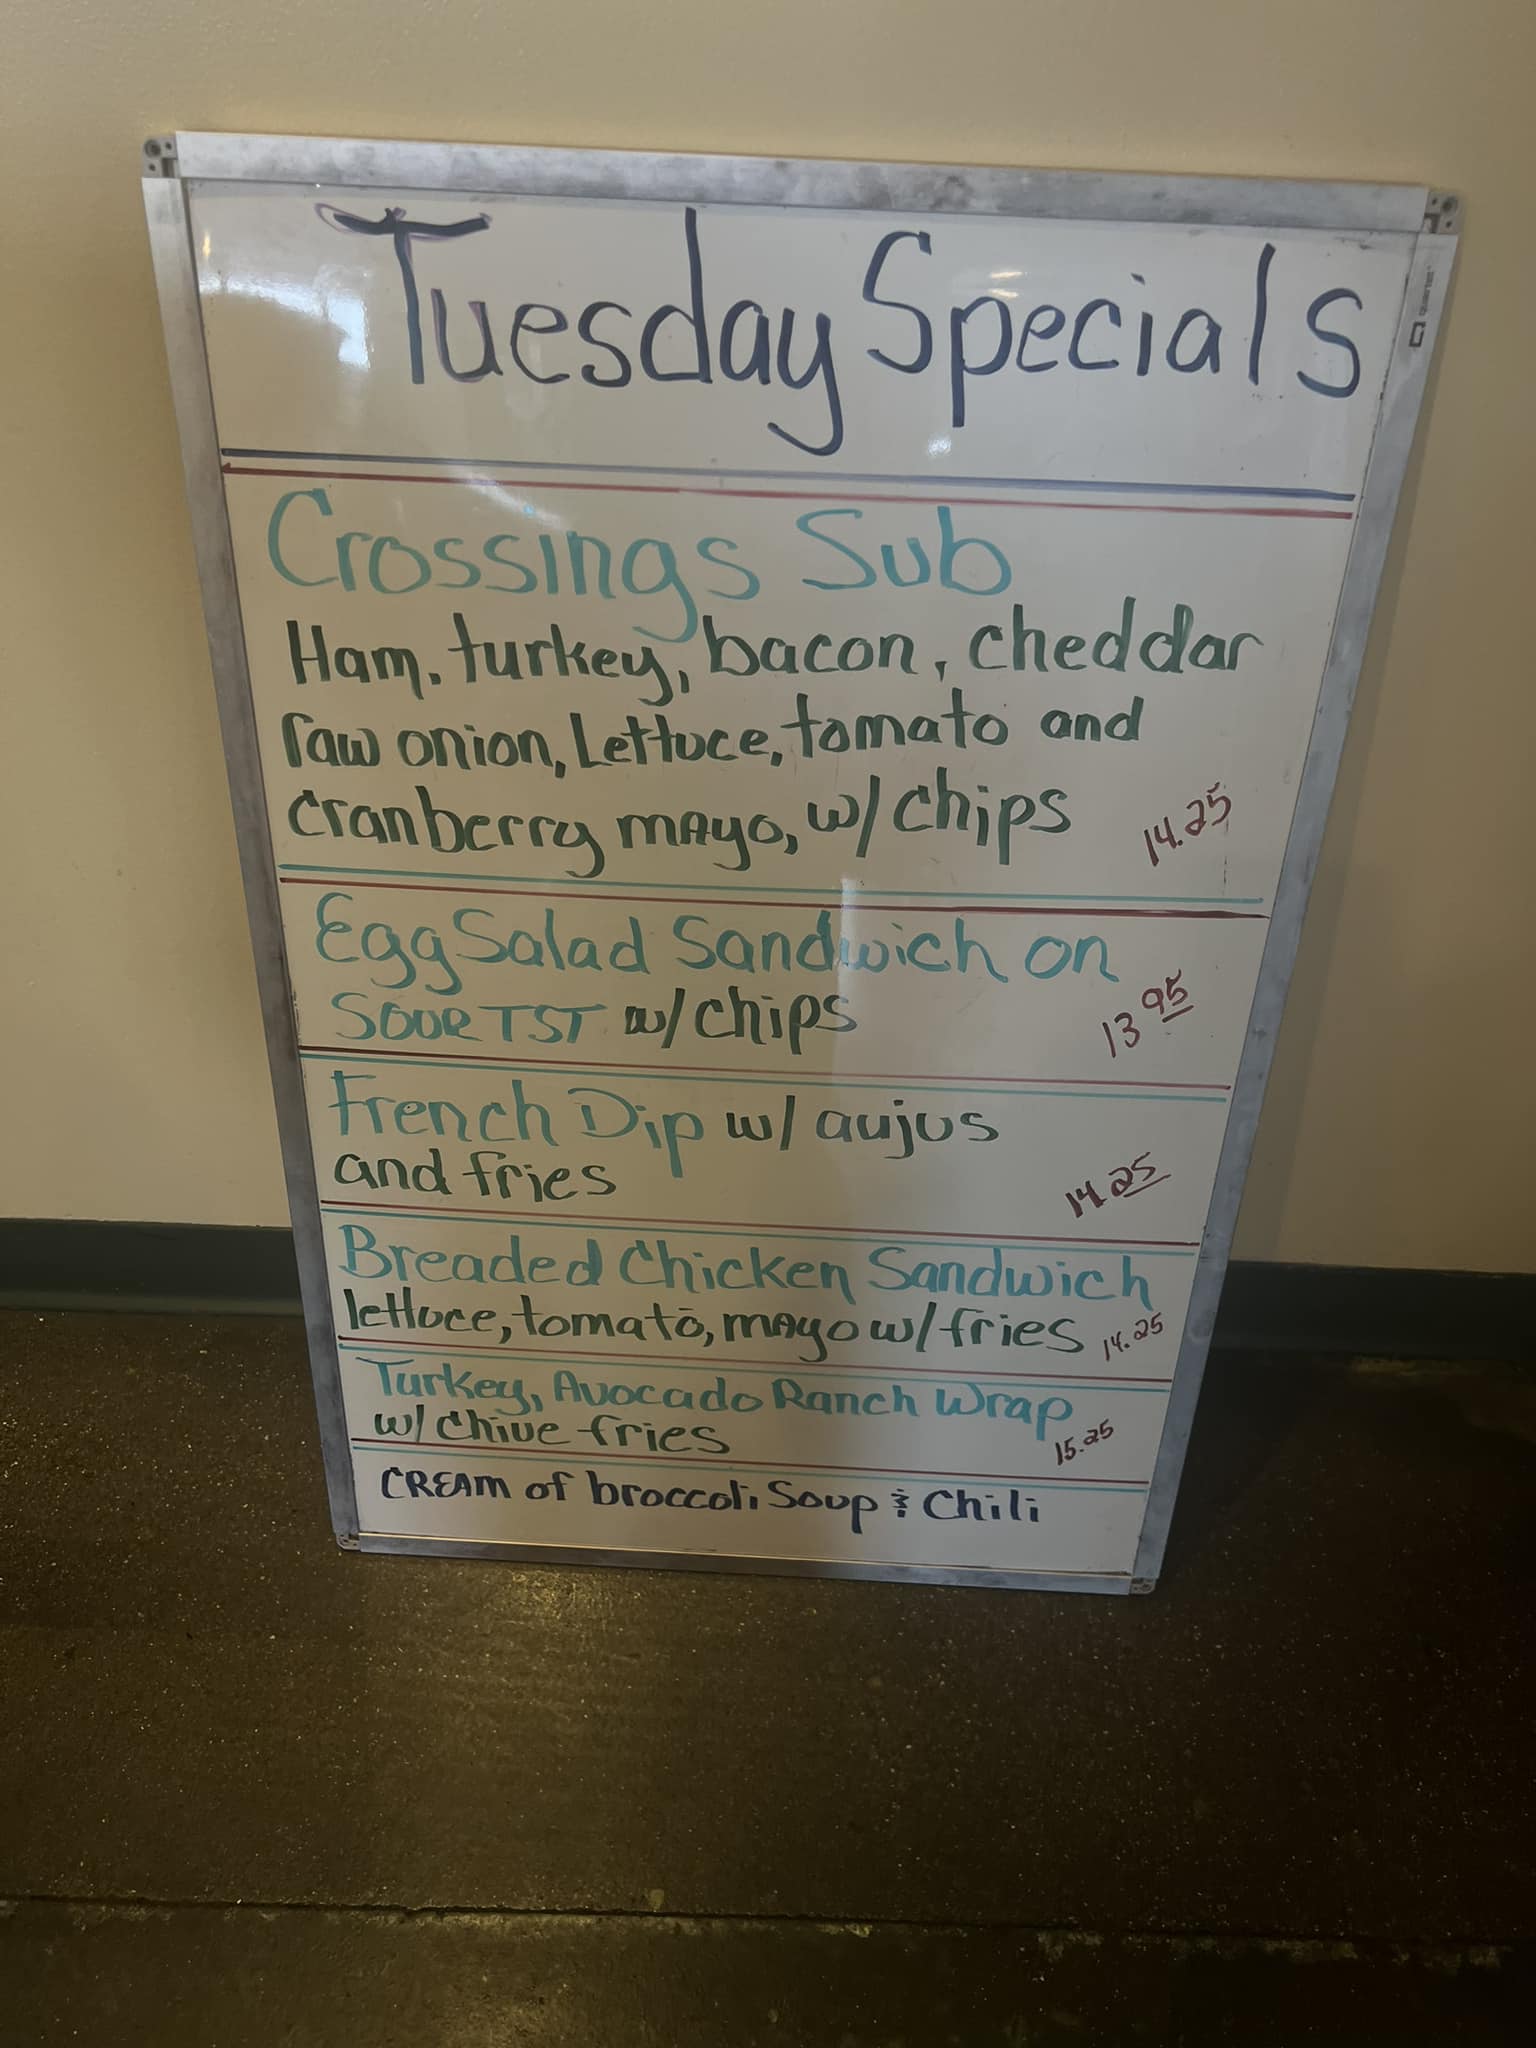 Tuesday Specials
Crossings Sub
Ham, turkey, bacon, cheddar
raw onion, Lettuce, tomato and
cranberry mayo, w/ chips 14.25
Egg Salad Sandwich on
SOUR TST w/ chips 13 95
French Dip w/ aujus
and fries 14.25
Breaded Chicken Sandwich
lettuce, tomato, mayo w/ fries 14.25
Turkey, Avocado Ranch Wrap
w/ chive fries 15.25
CREAM of broccoli Soup & Chili